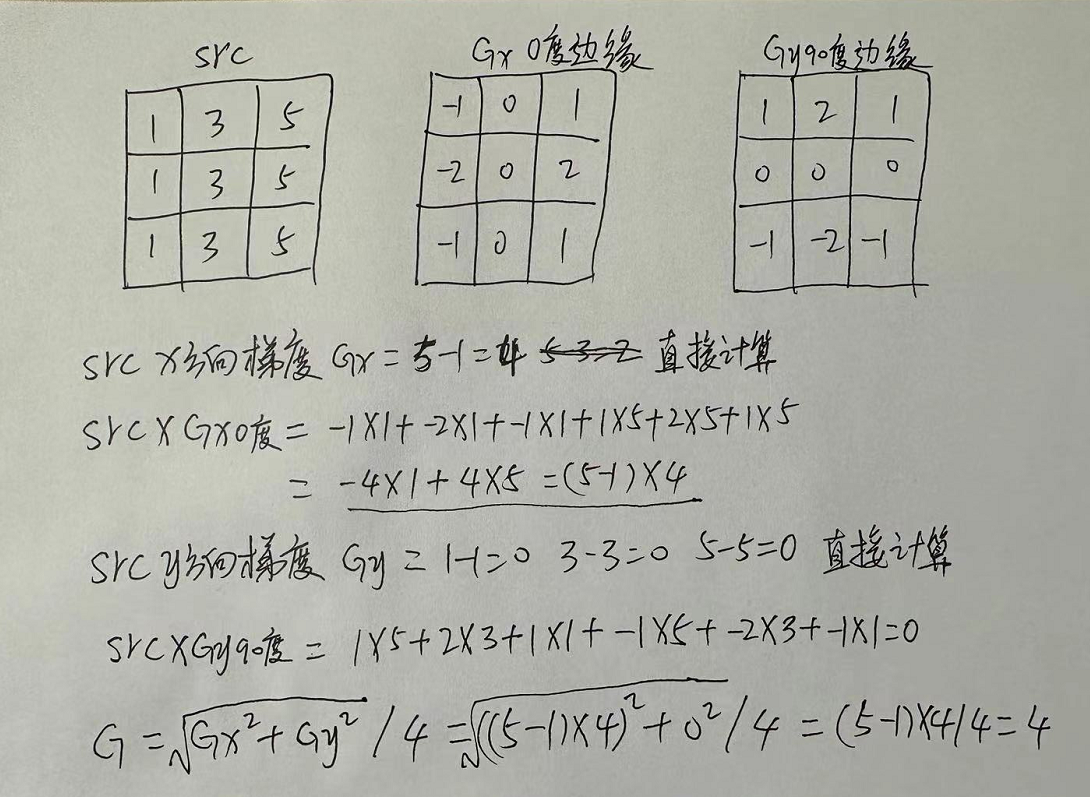 src Gx 0度边缘 Gy90度边缘
1 3 5 -1 0 1 1 2 1
1 3 5 -2 0 2 0 0 0
1 3 5 -1 0 1 -1 -2 -1
src x方向梯度 Gx = 5-1=4 5-3=2 直接计算
src X Gx0度 = -1X1+-2X1+-1X1+1X5+2X5+1X5
= -4X1+4X5 =(5-1)X4
src y方向梯度 Gy = 1-1=0 3-3=0 5-5=0 直接计算
srcXGy90度 = 1X5+2X3+1X1+-1X5+-2X3+-1X1=0
G =√Gx²+Gy² /4 =√((5-1)X4)²+0² /4 = (5-1)X4/4=4